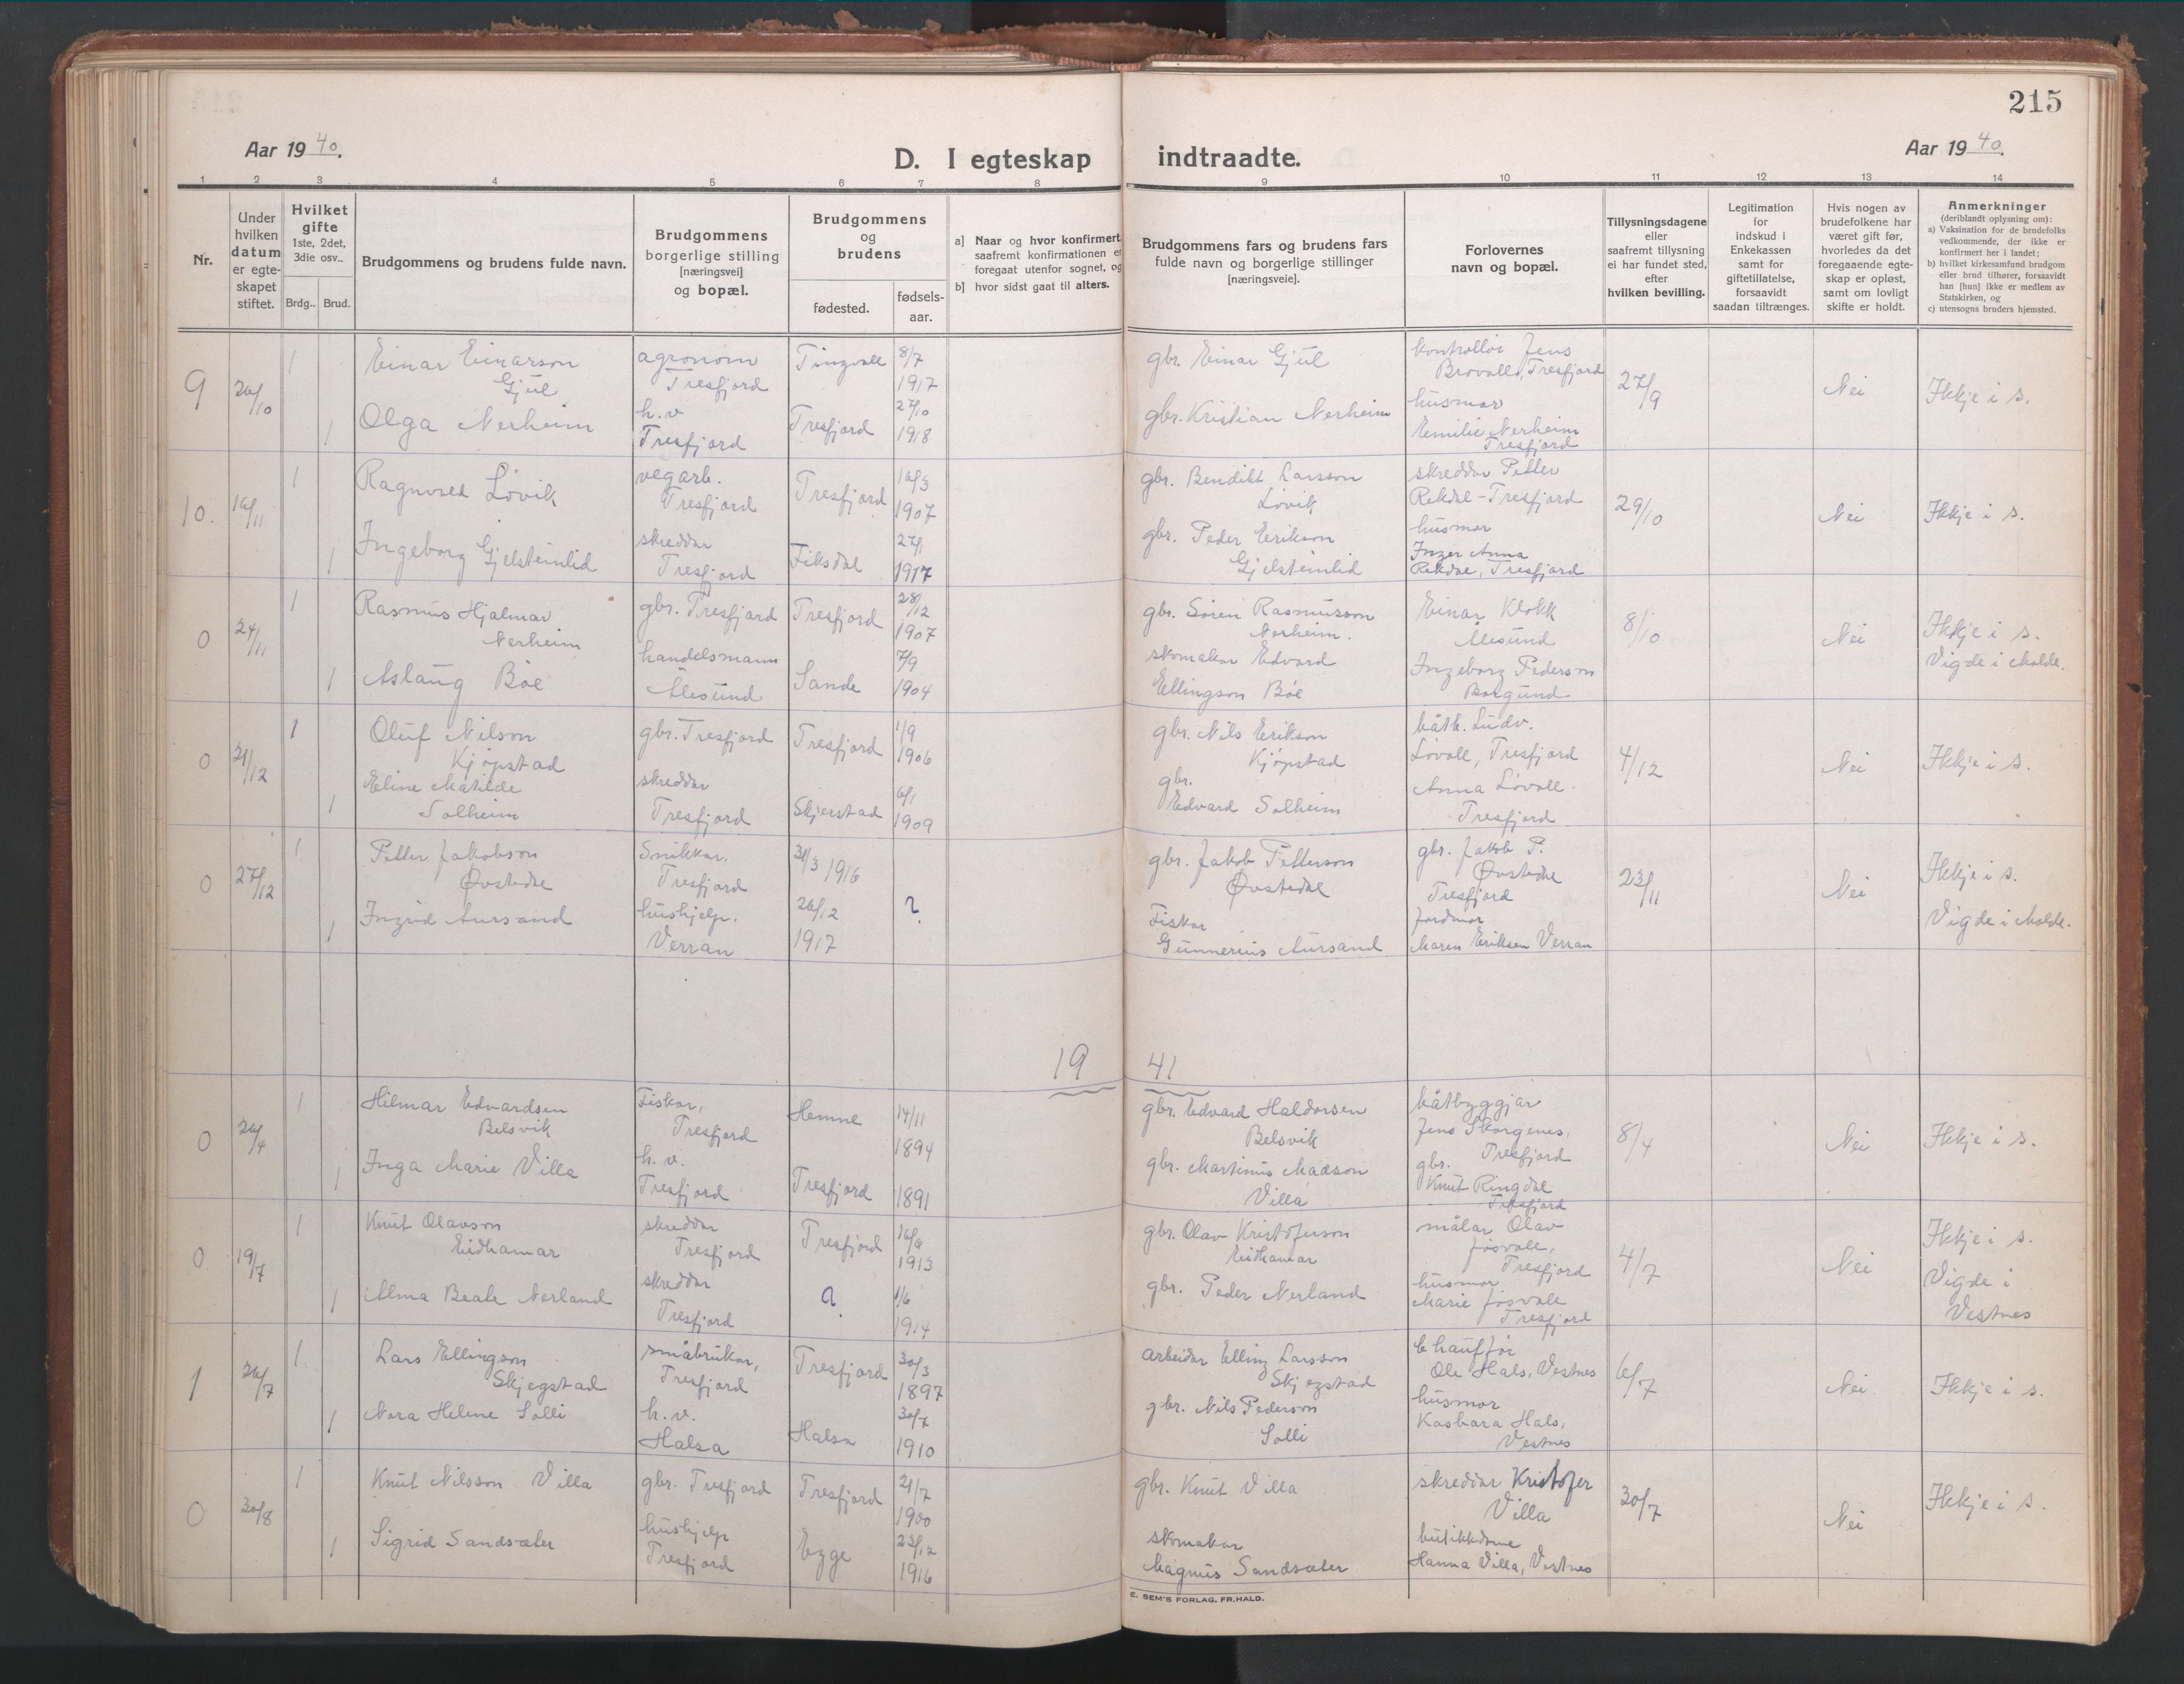 215
Aar 1940.
D. I egteskap indtraadte.
Aar 1940.
1 2 3 4 5 6 7 8 9 10 11 12 13 14
Nr.
Under hvilken datum er egte-skapet stiftet.
Hvilket gifte 1ste, 2det, 3die osv..
Brdg.. Brud.
Brudgommens og brudens fulde navn.
Brudgommens borgerlige stilling [næringsvei] og bopæl.
Brudgommens og brudens
fødested.
fødsels-aar.
a] Naar og hvor konfirmert
saafremt konfirmationen e
foregaat utenfor sognet, og
b] hvor sidst gaat til alters.
Brudgommens fars og brudens fars
fulde navn og borgerlige stillinger
[næringsveie].
Forlovernes
navn og bopæl.
Tillysningsdagene
eller
saafremt tillysning
ei har fundet sted,
efter
hvilken bevilling.
Legitimation
for
indskud i
Enkekassen
samt for
giftetillatelse,
forsaavidt
saadan tiltrænges.
Hvis nogen av
brudefolkene har
været gift før,
hvorledes da det
foregaaende egte-
skap er opløst,
samt om lovligt
skifte er holdt.
Anmerkninger
(deriblandt oplysning om):
a) Vaksination for de brudefolks
vedkommende, der ikke er
konfirmert her i landet;
b) hvilket kirkesamfund brudgom
eller brud tilhører, forsaavidt
han [hun] ikke er medlem av
Statskirken, og
c) utensogns bruders hjemsted.
9 26/10 1 Einar Einarson Gjül agronom Tresfjord Tingvoll 8/7 1917 gbr. Einar Gjül kontrollør Jens Brovoll, Tresfjord 27/9 Nei Ikkje i s.
1 Olga Nerheim h.v Tresfjord Tresfjord 27/10 1918 gbr. Kristian Nerheim husmor Emilie Nerheim Tresfjord
10. 16/11 1 Ragnvald Løvik vegarb. Tresfjord Tresfjord 16/3 1907 gbr. Bendikt Larsson Løvik skreddar Petter Rekdal - Tresfjord 29/10 Nei Ikkje i s.
1 Ingeborg Gjelsteinlid skreddar Tresfjord Fiksdal 27/1 1917 gbr. Peder Erikson Gjelsteinlid husmor Inger Anna Rekdal, Tresfjord
0 24/11 1 Rasmus Hjalmar Nerheim gbr. Tresfjord Tresfjord 28/12 1907 gbr. Søren Rasmusson Nerheim. Einar Klokk Ålesund 8/10 Nei Ikkje i s. Vigde i Molde.
1 Aslaug Bøe handelsmann Ålesund Sande 7/9 1904 skomakar Edvard Ellingson Bøe Ingeborg Pederson Borgund
0 21/12 1 Oluf Nilson Kjøpstad gbr. Tresfjord Tresfjord 1/9 1906 gbr. Nils Erikson Kjøpstad båtb. Ludv. Løvoll, Tresfjord 4/12 Nei Ikkje i s.
1 Eline Matilde Solheim skreddar Tresfjord Skjerstad 6/1 1909 gbr. Edvard Solheim Anna Løvoll Tresfjord
0 27/12 1 Petter Jakobson Øvstedal Snikkar. Tresfjord 31/3 1916 gbr. Jakob Petterson Øvstedal gbr. Jakob P. Øvstedal Tresfjord 23/11 Nei Ikkje i s. Vigde i Molde.
1 Ingrid Aursand hushjelp. Verran 26/12 1917 ? Fiskar Gunnerius Aursand Jordmor Maren Eriksen Verran
19 41
0 26/4 1 Hilmar Edvardsen Belsvik Fiskar, Tresfjord Hemne 14/11 1894 gbr. Edvard Haldorsen Belsvik båtbyggjar Jens Skorgenes, Tresfjord 8/4 Nei Ikkje i s.
1 Inga Marie Villa h.v. Tresfjord Tresfjord 1891 gbr. Martinus Madson Villa gbr. Knut Ringdal Tresfjord
0 19/7 1 Knut Olavson Eidhamar skreddar Tresfjord Tresfjord 16/6 1913 gbr. Olav Kristoferson Eidhamar målar Olav Jøsvoll, Tresfjord 4/7 Nei Ikkje i s. Vigde i Vestnes
1 Alma Beate Nerland skreddar Tresfjord ? 1/6 1914 gbr. Peder Nerland husmor Marie Jøsvoll Tresfjord
1 26/7 1 Lars Ellingson Skjegstad småbrukar, Tresfjord Tresfjord 30/3 1897 arbeidar Elling Larsson Skjegstad Chauffør Ole Hals, Vestnes 6/7 Nei Ikkje i s.
1 Nora Helene Solli h.v. Halsa Halsa 30/7 1910 gbr. Nils Pederson Solli husmor Kasbara Hals, Vestnes
0 30/8 1 Knut Nilsson Villa gbr. Tresfjord Tresfjord 21/7 1900 gbr. Knut Villa skreddar Kristofer Villa 30/7 Nei Ikkje i s.
1 Sigrid Sandsæter hushjelp Tresfjord Egge 23/12 1916 skomakar Magnus Sandsæter butikkdame Hanna Villa, Vestnes
E. SEM'S FORLAG, FR.HALD.